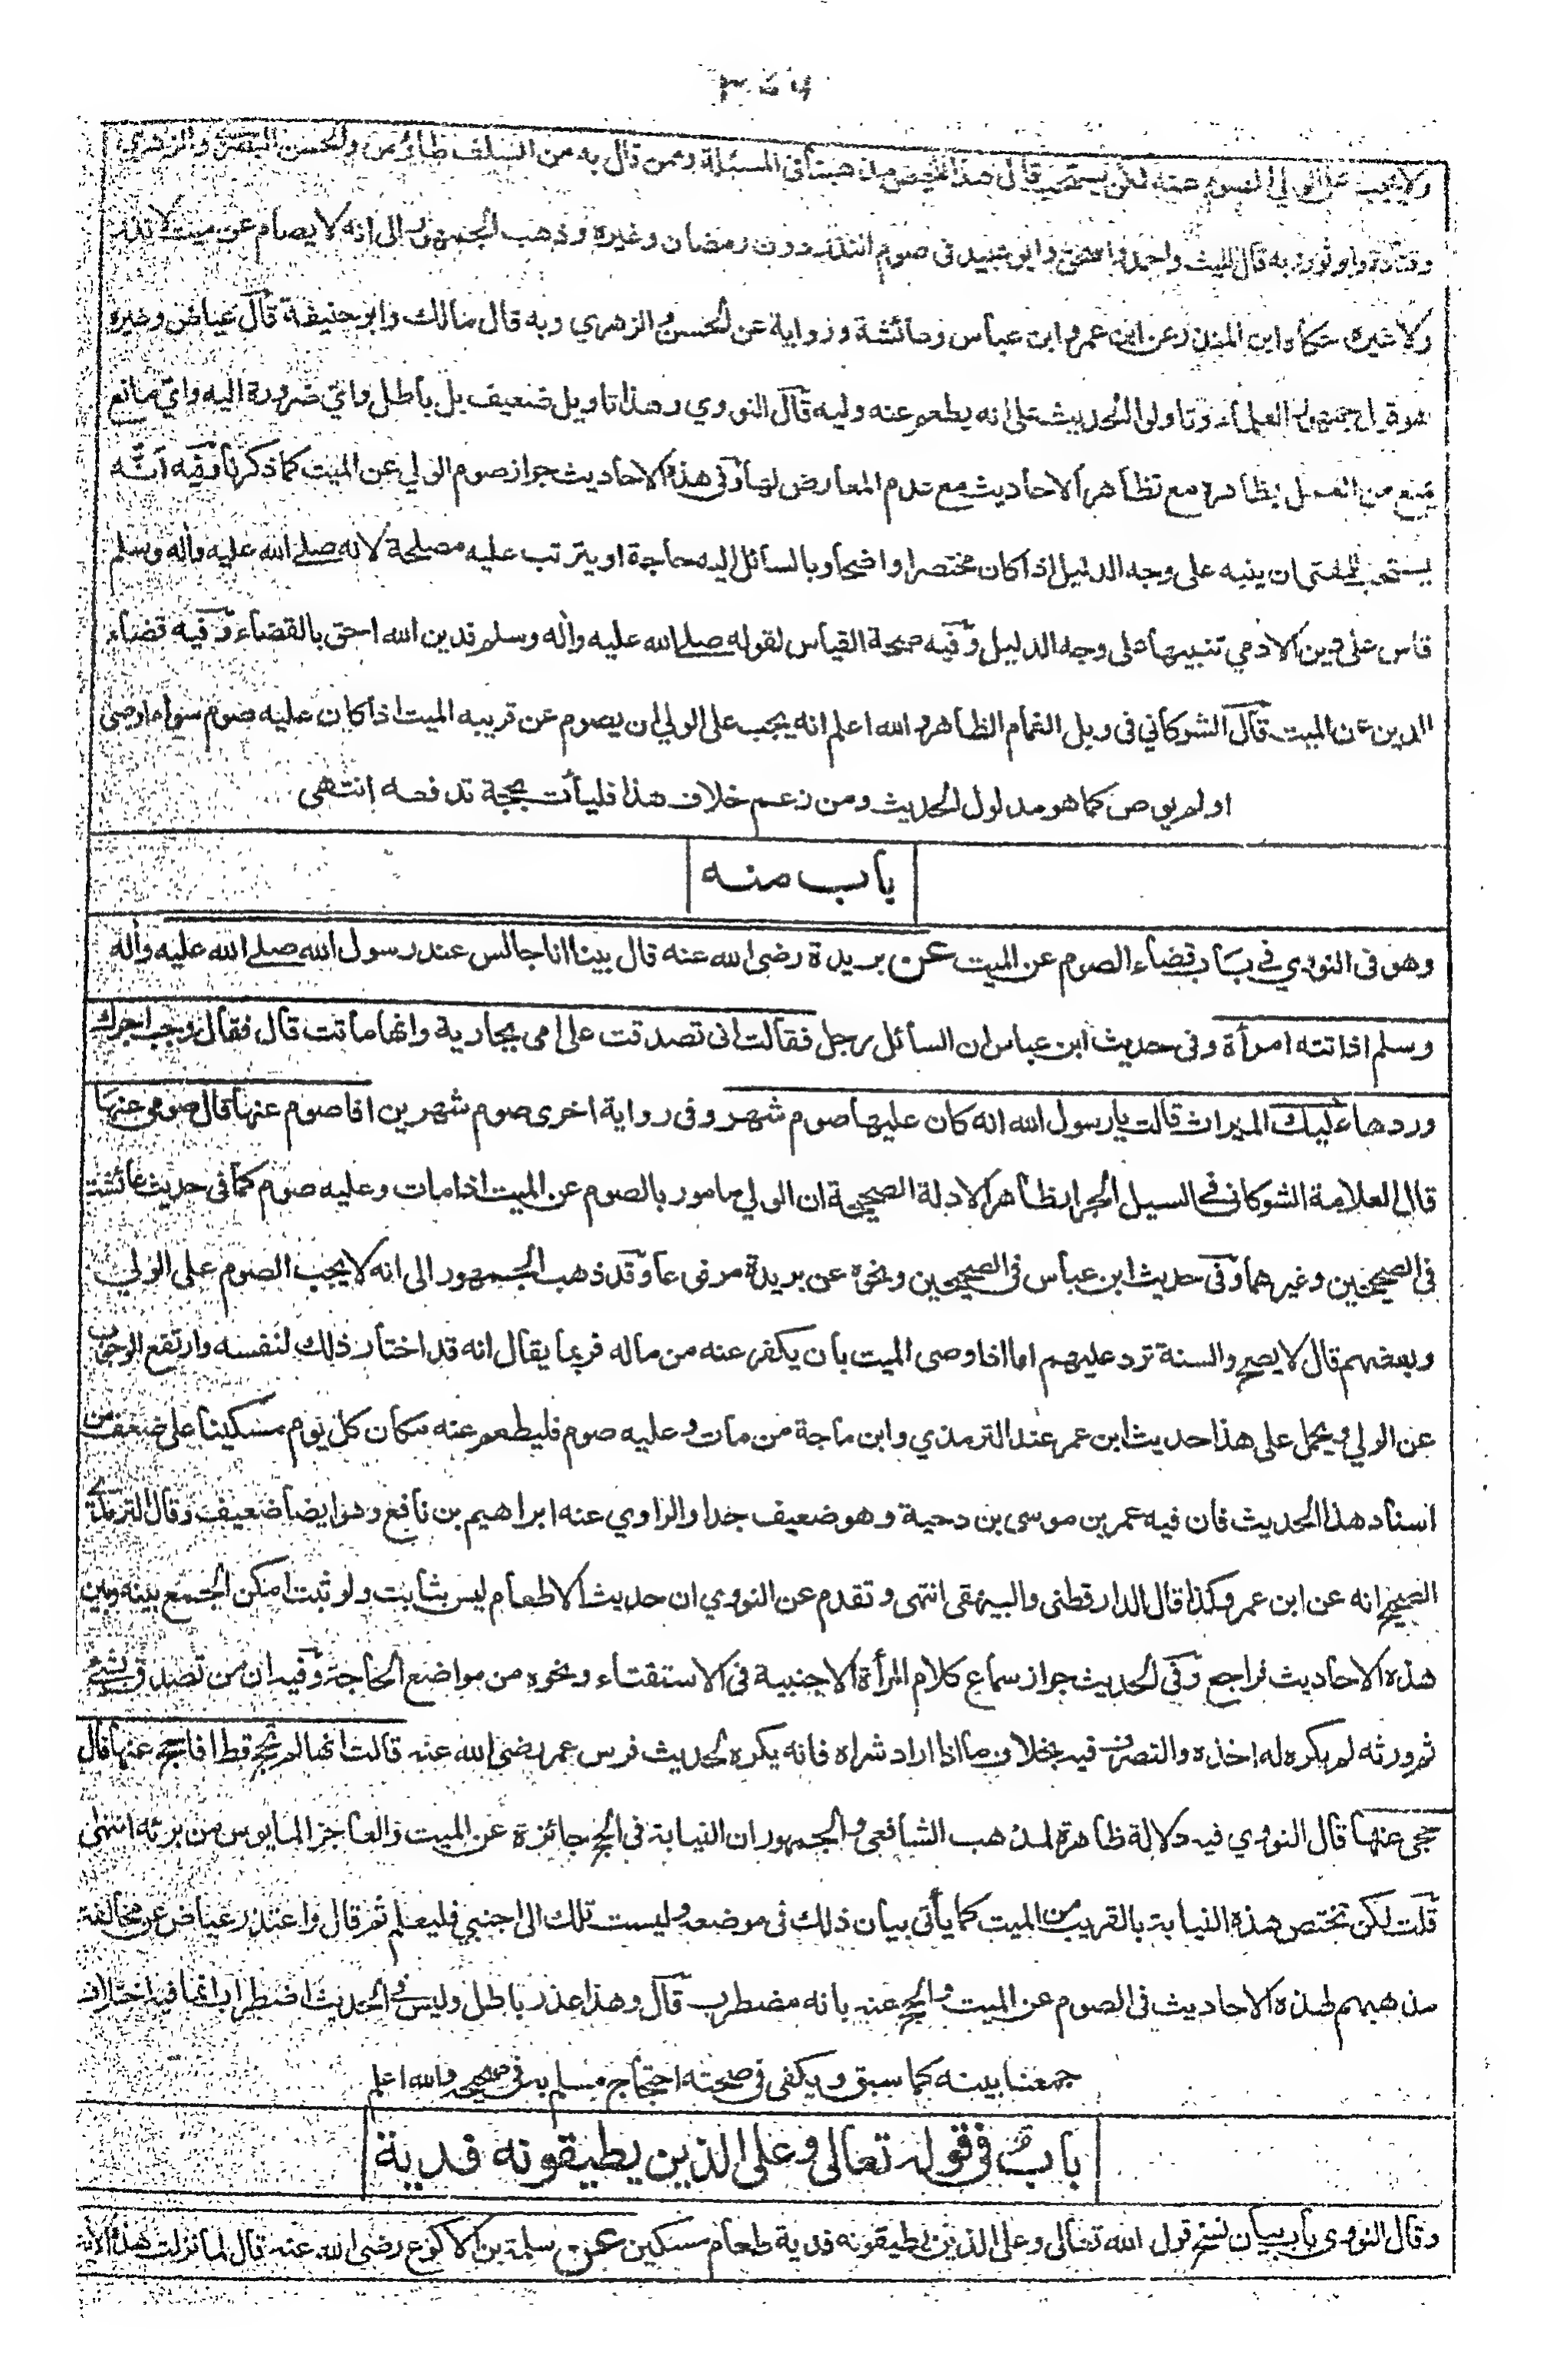 ولا يجب على الولي الصوم عنه لكن يستحب قال هذا تلخيص مذهبنا في المسئلة وممن قال به من السلف طاؤس والحسن البصري والزهري
وقتادة وابو ثور وبه قال الليث واحمد واسحق وابو عبيد في صوم النذر دون رمضان وغيره وذهب الجمهور الى انه لا يصام عن ميت لا نذر
ولا غيره حكاه ابن المنذر عن ابن عمر وابن عباس وعائشة ورواية عن الحسن والزهري وبه قال مالك وابو حنيفة قال عياض وغيره
هو قول جمهور العلماء وتاولوا الحديث على انه يطعم عنه وليه قال النووي وهذا تاويل ضعيف بل باطل واي ضرورة اليه واي مانع
يمنع من العمل بظاهره مع تظاهر الاحاديث مع عدم المعارض لها وفي هذه الاحاديث جواز صوم الولي عن الميت كما ذكرنا وفيه انه
يستحب للمفتي ان ينبه على وجه الدليل اذا كان مختصرا واضحا وبالسائل اليه حاجة او يترتب عليه مصلحة لانه صلے الله عليه واٰله وسلم
قاس على دين الادمي تنبيها على وجه الدليل وفيه صحة القياس لقوله صلے الله عليه واٰله وسلم فدين الله احق بالقضاء وفيه قضاء
الدين عن الميت قال الشوكاني في وبل الغمام الظاهر والله اعلم انه يجب على الولي ان يصوم عن قريبه الميت اذا كان عليه صوم سواء اوصى
او لم يوص كما هو مدلول الحديث ومن زعم خلاف هذا فليأت بحجة تدفعه انتهى
باب منه
وهو في النووي في باب قضاء الصوم عن الميت عن بريدة رضى الله عنه قال بينا انا جالس عند رسول الله صلے الله عليه واٰله
وسلم اذ اتته امرأة وفي حديث ابن عباس ان السائل رجل فقالت اني تصدقت على امي بجارية وانها ماتت قال فقال وجب اجرك
وردها عليك الميراث قالت يا رسول الله انه كان عليها صوم شهر وفي رواية اخرى صوم شهرين افاصوم عنها قال صومي عنها
قال العلامة الشوكاني في السيل الجرار ظاهر الادلة الصحيحة ان الولي مامور بالصوم عن الميت اذا مات وعليه صوم كما في حديث عائشة
في الصحيحين وغيرهما وفي حديث ابن عباس في الصحيحين ونحوه عن بريدة مرفوعا وقد ذهب الجمهور الى انه لا يجب الصوم على الولي
وبعضهم قال لا يصح والسنة ترد عليهم اما اذا وصى الميت بان يكفر عنه من ماله فربما يقال انه قد اختار ذلك لنفسه وارتفع الوجوب
عن الولي ويحمل على هذا حديث ابن عمر عند الترمذي وابن ماجة من مات وعليه صوم فليطعم عنه مكان كل يوم مسكينا على ضعف من
اسناد هذا الحديث فان فيه عمر بن موسى بن دحية وهو ضعيف جدا والراوي عنه ابراهيم بن نافع وهو ايضا ضعيف وقال الترمذي
الصحيح انه عن ابن عمر وكذا قال الدارقطني والبيهقي انتهى وتقدم عن النووي ان حديث الاطعام ليس بثابت ولو ثبت امكن الجمع بينه وبين
هذه الاحاديث فراجع وفي الحديث جواز سماع كلام المرأة الاجنبية في الاستفتاء ونحوه من مواضع الحاجة وفيه ان من تصدق بشئ
ثم ورثه لم يكره له اخذه والتصرف فيه بخلاف ما اذا اراد شراه فانه يكره لحديث فرس عمر رضي الله عنه قالت انها لم تحج قط افاحج عنها قال
حجي عنها قال النووي فيه دلالة ظاهرة لمذهب الشافعي والجمهور ان النيابة في الحج جائزة عن الميت والعاجز المايوس من برئه انتهى
قلت لكن تختص هذه النيابة بالقريب من الميت كما يأتي بيان ذلك في موضعه وليست تلك الى اجنبي فليعلم ثم قال واعتذر عياض عن مخالفة
مذهبهم لهذه الاحاديث في الصوم عن الميت والحج عنه بانه مضطرب قال وهذا عذر باطل وليس في الحديث اضطراب انما فيه اختلاف
جمعنا بينه كما سبق ويكفي في صحته احتجاج مسلم به في صحيحه والله اعلم
باب في قوله تعالى وعلى الذين يطيقونه فدية
وقال النووي باب بيان نسخ قول الله تعالى وعلى الذين يطيقونه فدية طعام مسكين عن سلمة بن الاكوع رضي الله عنه قال لما نزلت هذه الاية